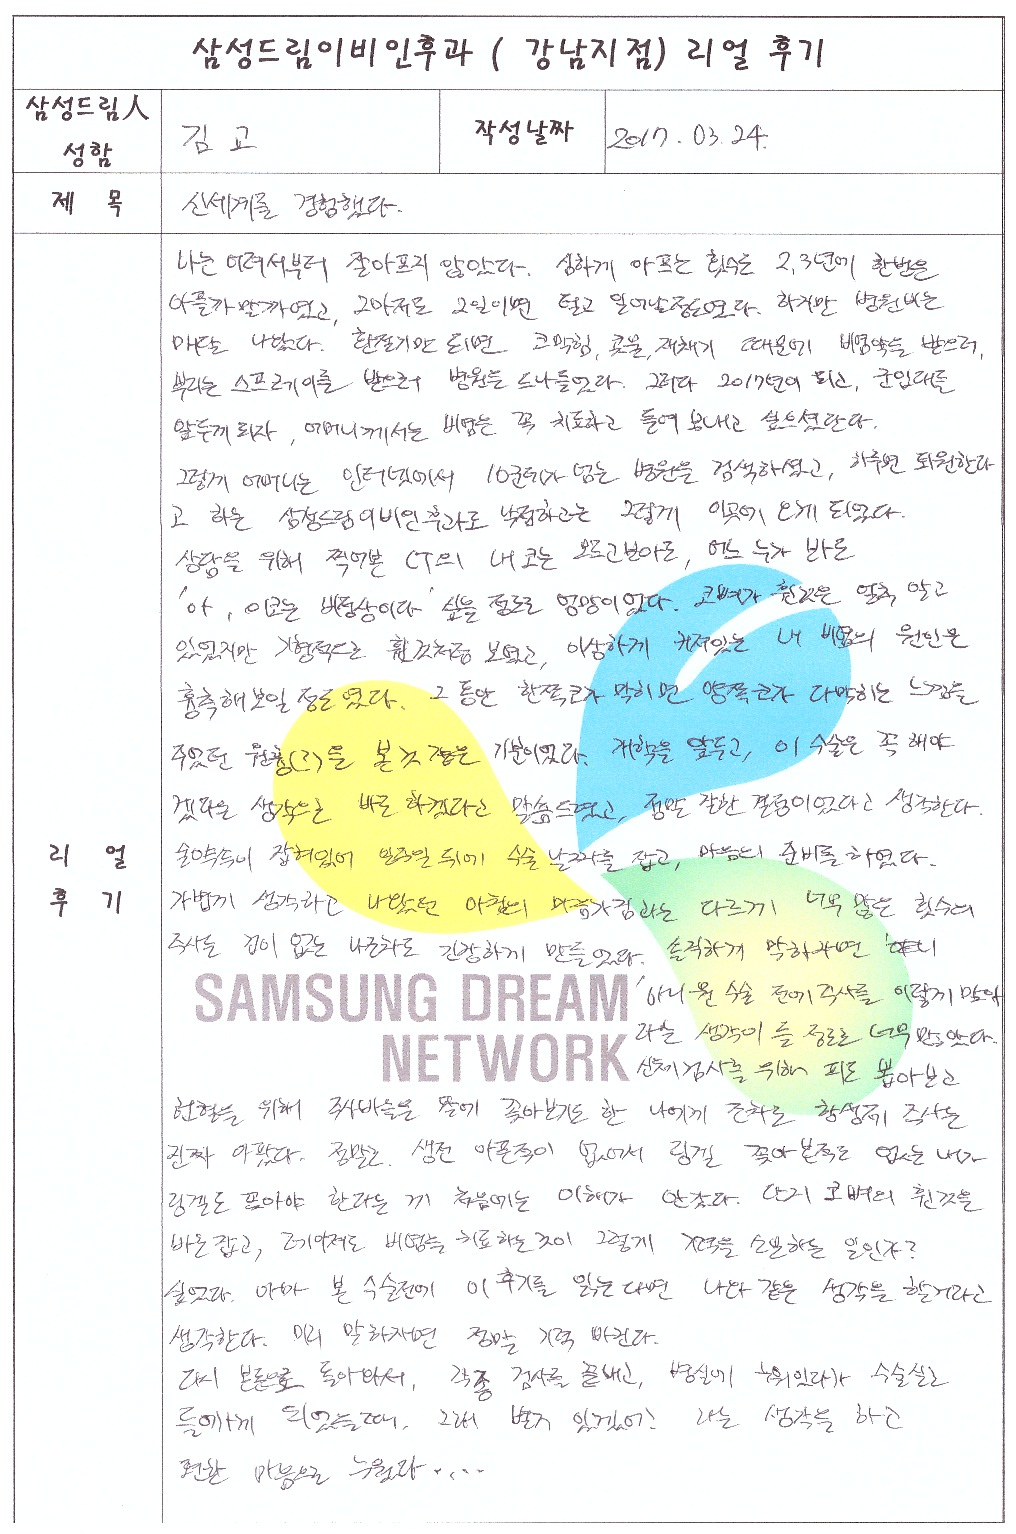 삼성드림이비인후과 ( 강남지점) 리얼 후기
삼성드림人
성함
김 교
작성날짜
2017. 03. 24.
제 목
신세계를 경험했다.
리 얼
후 기
나는 어려서부터 잘 아프지 않았다. 심하게 아프는 횟수는 2,3년에 한번은
아플까 말까였고, 그마저도 2일이면 털고 일어날정도였다. 하지만 병원비는
매달 나갔다. 환절기만 되면 코막힘, 콧물, 재채기 때문에 비염약을 받으러,
뿌리는 스프레이를 받으러 병원을 드나들었다. 그러다 2017년이 되고, 군입대를
앞두게 되자, 어머니께서는 비염은 꼭 치료하고 들여 보내고 싶으셨단다.
그렇게 어머니는 인터넷에서 10군데가 넘는 병원을 검색하셨고, 하루면 퇴원한다
고 하는 삼성드림이비인후과로 낙점하고는 그렇게 이곳에 오게 되었다.
상담을 위해 찍어본 CT의 내 코는 모르고보아도, 어느 누가 봐도
'아, 이코는 비정상이다' 싶을 정도로 엉망이었다. 코벽가 휜것은 얼추 알고
있었지만 기형적으로 휜것처럼 보였고, 이상하게 커져있는 내 비염의 원인은
흉측해보일 정도였다. 그 동안 한쪽코가 막히면 양쪽코가 다막히는 느낌을
주었던 원흉(?)을 본것 같은 기분이었다. 개학을 앞두고, 이 수술은 꼭 해야
겠다는 생각으로 바로 하겠다고 말씀드렸고, 정말 잘한 결정이었다고 생각한다.
술약속이 잡혀있어 일주일 뒤에 수술 날짜를 잡고, 마음의 준비를 하였다.
가볍게 생각하고 나왔던 아침의 마음가짐과는 다르게 너무 많은 횟수의
주사는 겁이 없는 나조차도 긴장하게 만들었다. 솔직하게 말하자면
'아니 뭔 수술 전에 주사를 이렇게 많아
라는 생각이 들 정도로 너무 많았다.
SAMSUNG DREAM
NETWORK
신체검사를 위해 피도 뽑아보고
헌혈을 위해 주사바늘을 팔에 꽂아보기도 한 나에게 조차도 항생제 주사는
진짜 아팠다. 정말로. 생전 아픈적이 없어서 링겔 꽂아본적도 없는 내가
링겔도 꽂아야 한다는 게 처음에는 이해가 안갔다. 단지 코벽의 휜것을
바로잡고, 레이저로 비염을 치료하는것이 그렇게 기력을 소모하는 일인가?
싶었다. 아마 본 수술전에 이 후기를 읽는다면 나와 같은 생각을 할거라고
생각한다. 미리 말하자면 정말 기력 바진다.
다시 본론으로 돌아와서, 각종 검사를 끝내고, 병실에 누워있다가 수술실로
들어가게 되었을때, 그래 별거 있겠어? 라는 생각을 하고
편한 마음으로 누웠다.....